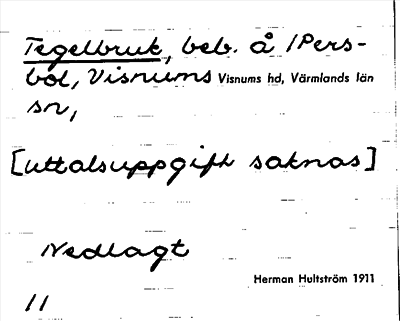 Tegelbruk, beb. å /Pers-
bol, Visnums Visnums hd, Värmlands län
sn,
[uttalsuppgift saknas]
Nedlagt
Herman Hultström 1911
11